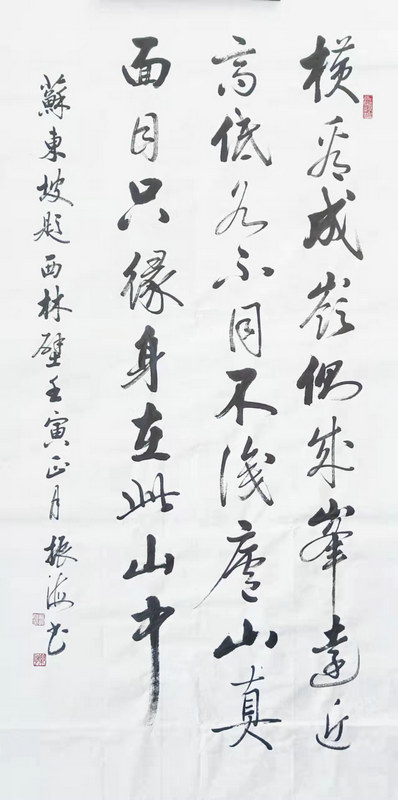 横看成嶺側成峯遠近
高低各不同不識廬山真
面目只緣身在此山中
蘇東坡題西林壁壬寅正月振海书